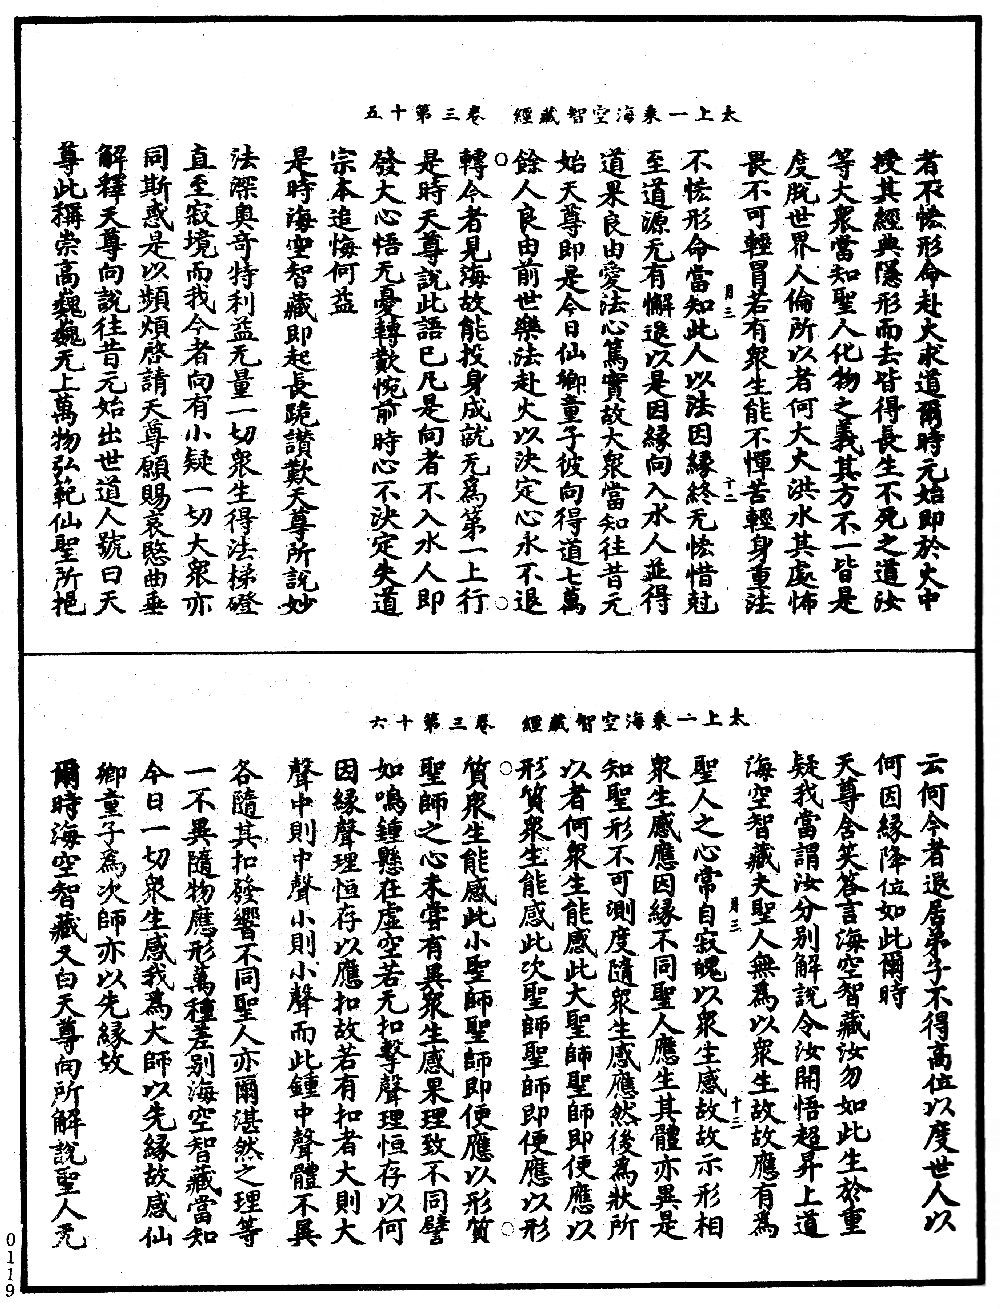 太上一乘海空智藏經　卷三第十五
者不恡形命赴火求道爾時元始即於火中
授其經典隱形而去皆得長生不死之道汝
等大衆當知聖人化物之義其方不一皆是
度脫世界人倫所以者何大火洪水其處怖
畏不可輕冒若有衆生能不憚苦輕身重法
月三　十二
不恡形命當知此人以法因緣終无恡惜尅
至道源无有懈退以是因緣向入水人並得
道果良由愛法心篤實故大衆當知往昔元
始天尊即是今日仙卿童子彼向得道七萬
餘人良由前世樂法赴火以決定心永不退
轉今者見海故能投身成就无爲第一上行
是時天尊說此語已凡是向者不入水人即
發大心悟无憂轉歎惋前時心不決定失道
宗本追悔何益
是時海空智藏即起長跪讚歎天尊所說妙
法深奧奇特利益无量一切衆生得法梯磴
直至寂境而我今者向有小疑一切大衆亦
同斯惑是以頻煩啓請天尊願賜哀愍曲垂
解釋天尊向說往昔元始出世道人號曰天
尊此稱崇高巍巍无上萬物弘範仙聖所挹
太上一乘海空智藏經　卷三第十六
云何今者退居弟子不得高位以度世人以
何因緣降位如此爾時
天尊含笑答言海空智藏汝勿如此生於重
疑我當謂汝分別解說令汝開悟超昇上道
海空智藏夫聖人無爲以衆生故故應有爲
月三　十三
聖人之心常自寂魄以衆生感故故示形相
衆生感應因緣不同聖人應生其體亦異是
知聖形不可測度隨衆生感應然後爲狀所
以者何衆生能感此大聖師聖師即便應以
形質衆生能感此次聖師聖師即便應以形
質衆生能感此小聖師聖師即便應以形質
聖師之心未嘗有異衆生感果理致不同譬
如鳴鍾懸在虛空若无扣擊聲理恒存以何
因緣聲理恒存以應扣故若有扣者大則大
聲中則中聲小則小聲而此鍾中聲體不異
各隨其扣發響不同聖人亦爾湛然之理等
一不異隨物應形萬種差別海空智藏當知
今日一切衆生感我爲大師以先緣故感仙
卿童子爲次師亦以先緣故
爾時海空智藏又白天尊向所解說聖人无
0119